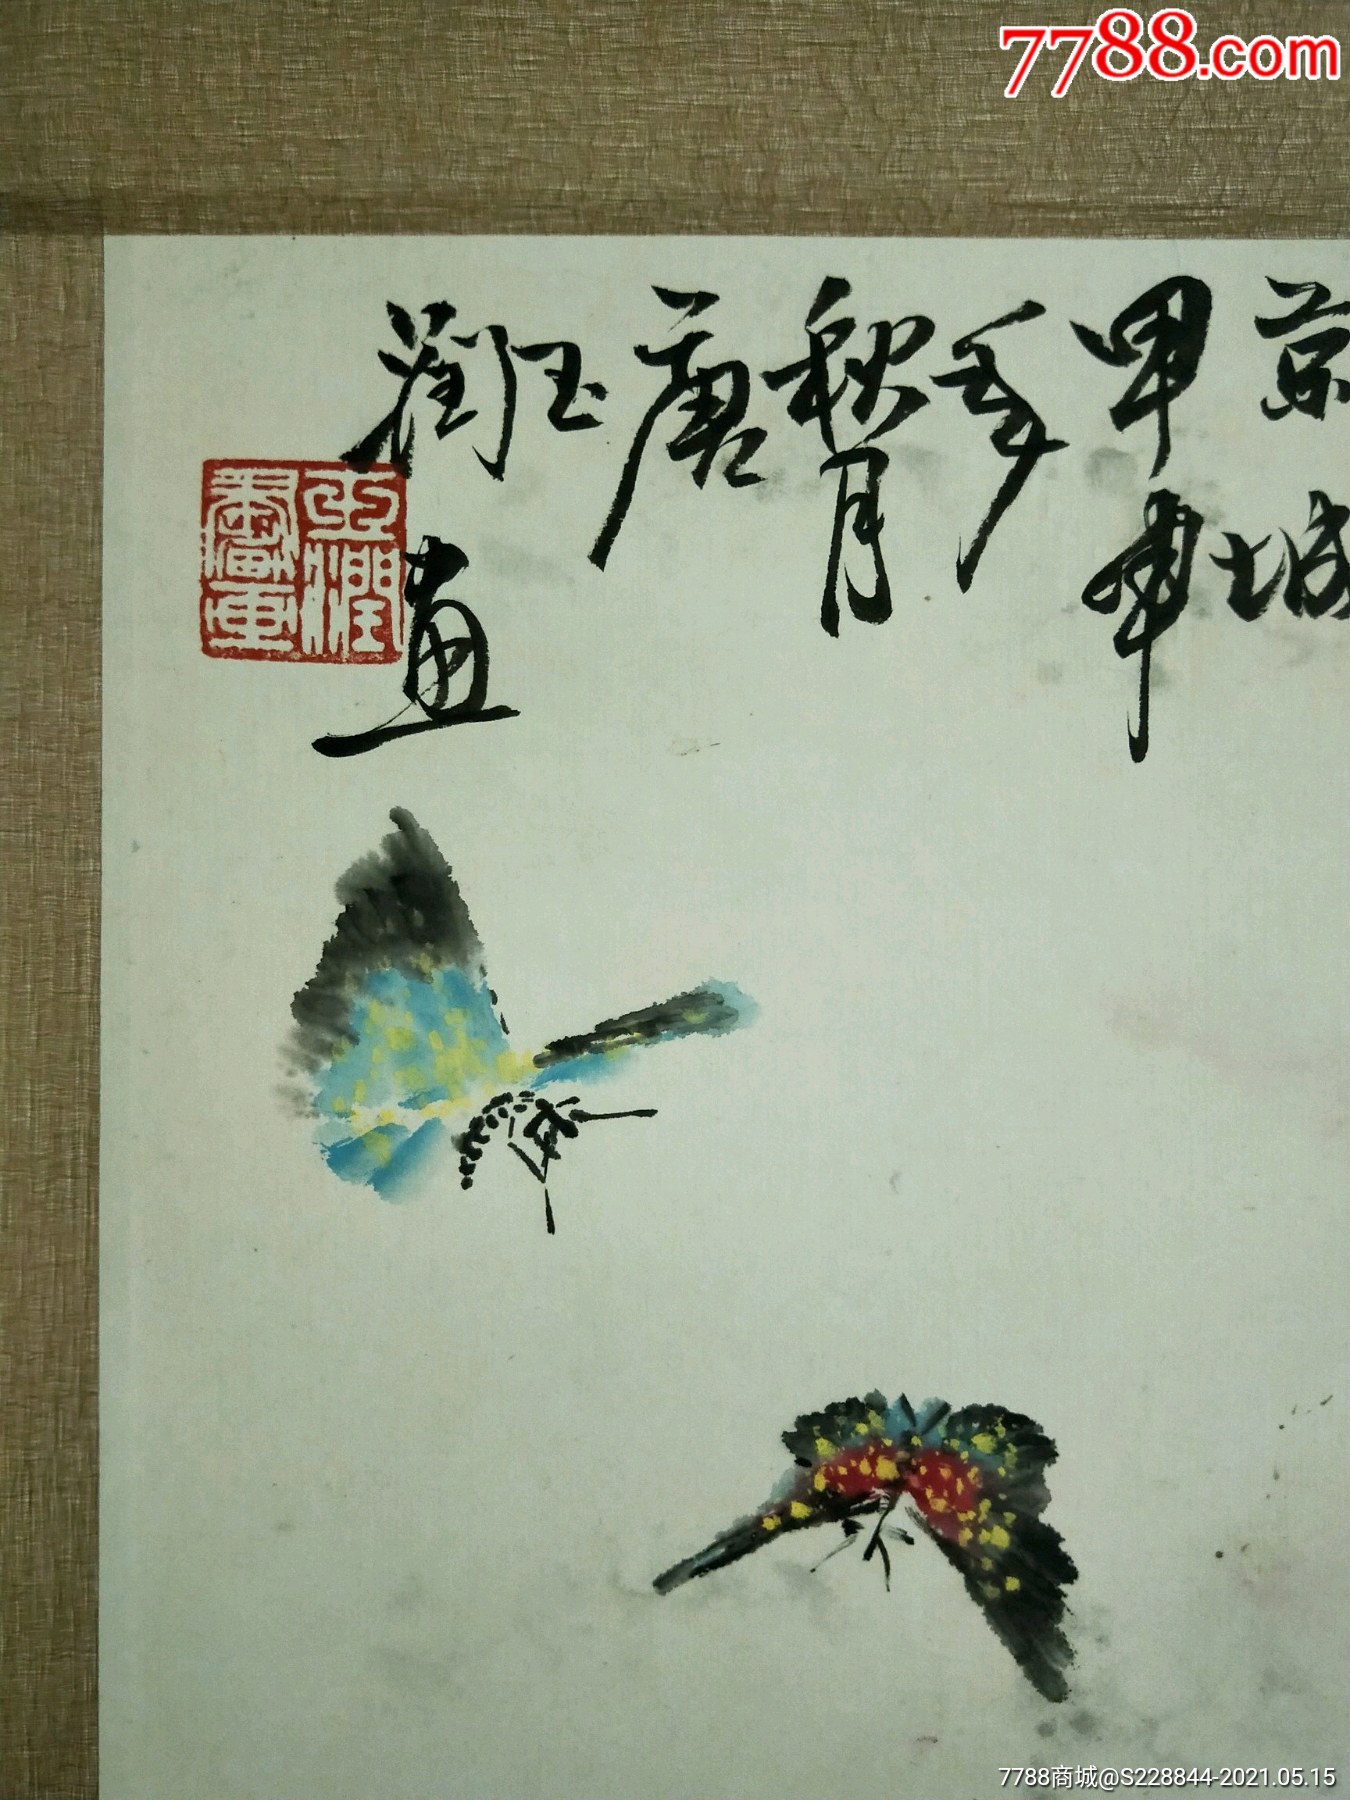 7788.com
京城
甲
年
秋月
唐
玉
润画
玉潤
7788商城@S228844-2021.05.15